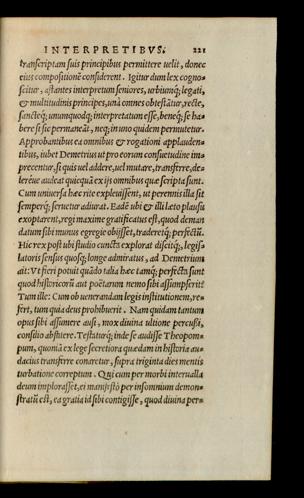 INTERPRETIBVS. 221
transcriptam suis principibus permittere uelit, donec
eius compositionē considerent. Igitur dum lex cogno-
scitur, astantes interpretum seniores, urbiumq; legati,
& multitudinis principes, unà omnes obtestātur, recte,
sancteq; unumquodq; interpretatum esse, beneq; se ha-
bere si sic permaneāt, neq; in uno quidem permutetur.
Approbantibus ea omnibus & rogationi applauden-
tibus, iubet Demetrius ut pro eorum consuetudine im-
precentur, si quis uel addere, uel mutare, transferre, de-
lereue audeat quicquā ex ijs omnibus quæ scripta sunt.
Cum uniuersa hæc rite expleuissent, ut perennis illa sit
semperq; seruetur adiurat. Eadē ubi & illi læto plausu
exoptarent, regi maxime gratificatus est, quod deman
datum sibi munus egregie obijsset, traderetq; perfectū.
Hic rex post ubi studio cuncta explorat discitq;, legis-
latoris sensus quosq; longe admiratus, ad Demetrium
ait: Vt fieri potuit quādo talia hæc tamq; perfecta sunt
quod historicorū aut poëtarum nemo sibi assumpserit?
Tum ille: Cum ob uenerandam legis institutionem, re-
fert, tum quia deus prohibuerit. Nam quidam tantum
opus sibi assumere ausi, mox diuina ultione percussi,
consilio abstitere. Testaturq; inde se audisse Theopom-
pum, quoniā ex lege secretiora quædam in historia au-
dacius transferre conaretur, supra triginta dies mentis
turbatione correptum. Qui cum per morbi interualla
deum implorasset, ei manifestò per insomnium demon-
stratū est, ea gratia id sibi contigisse, quod diuina per-